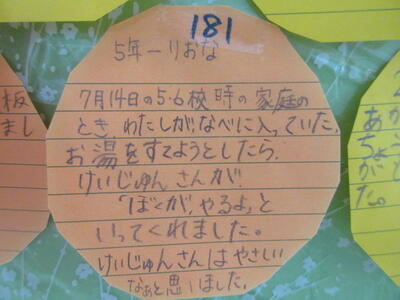 181
5年一りおな
7月14日の5・6校時の家庭の
とき、わたしがなべに入っていた、
お湯をすてようとしたら、
けいじゅんさんが、
「ぼくが、やるよ」と
いってくれました。
けいじゅんさんはやさしい
なあと思いました。
板
まし
あ
ちょ
がた。